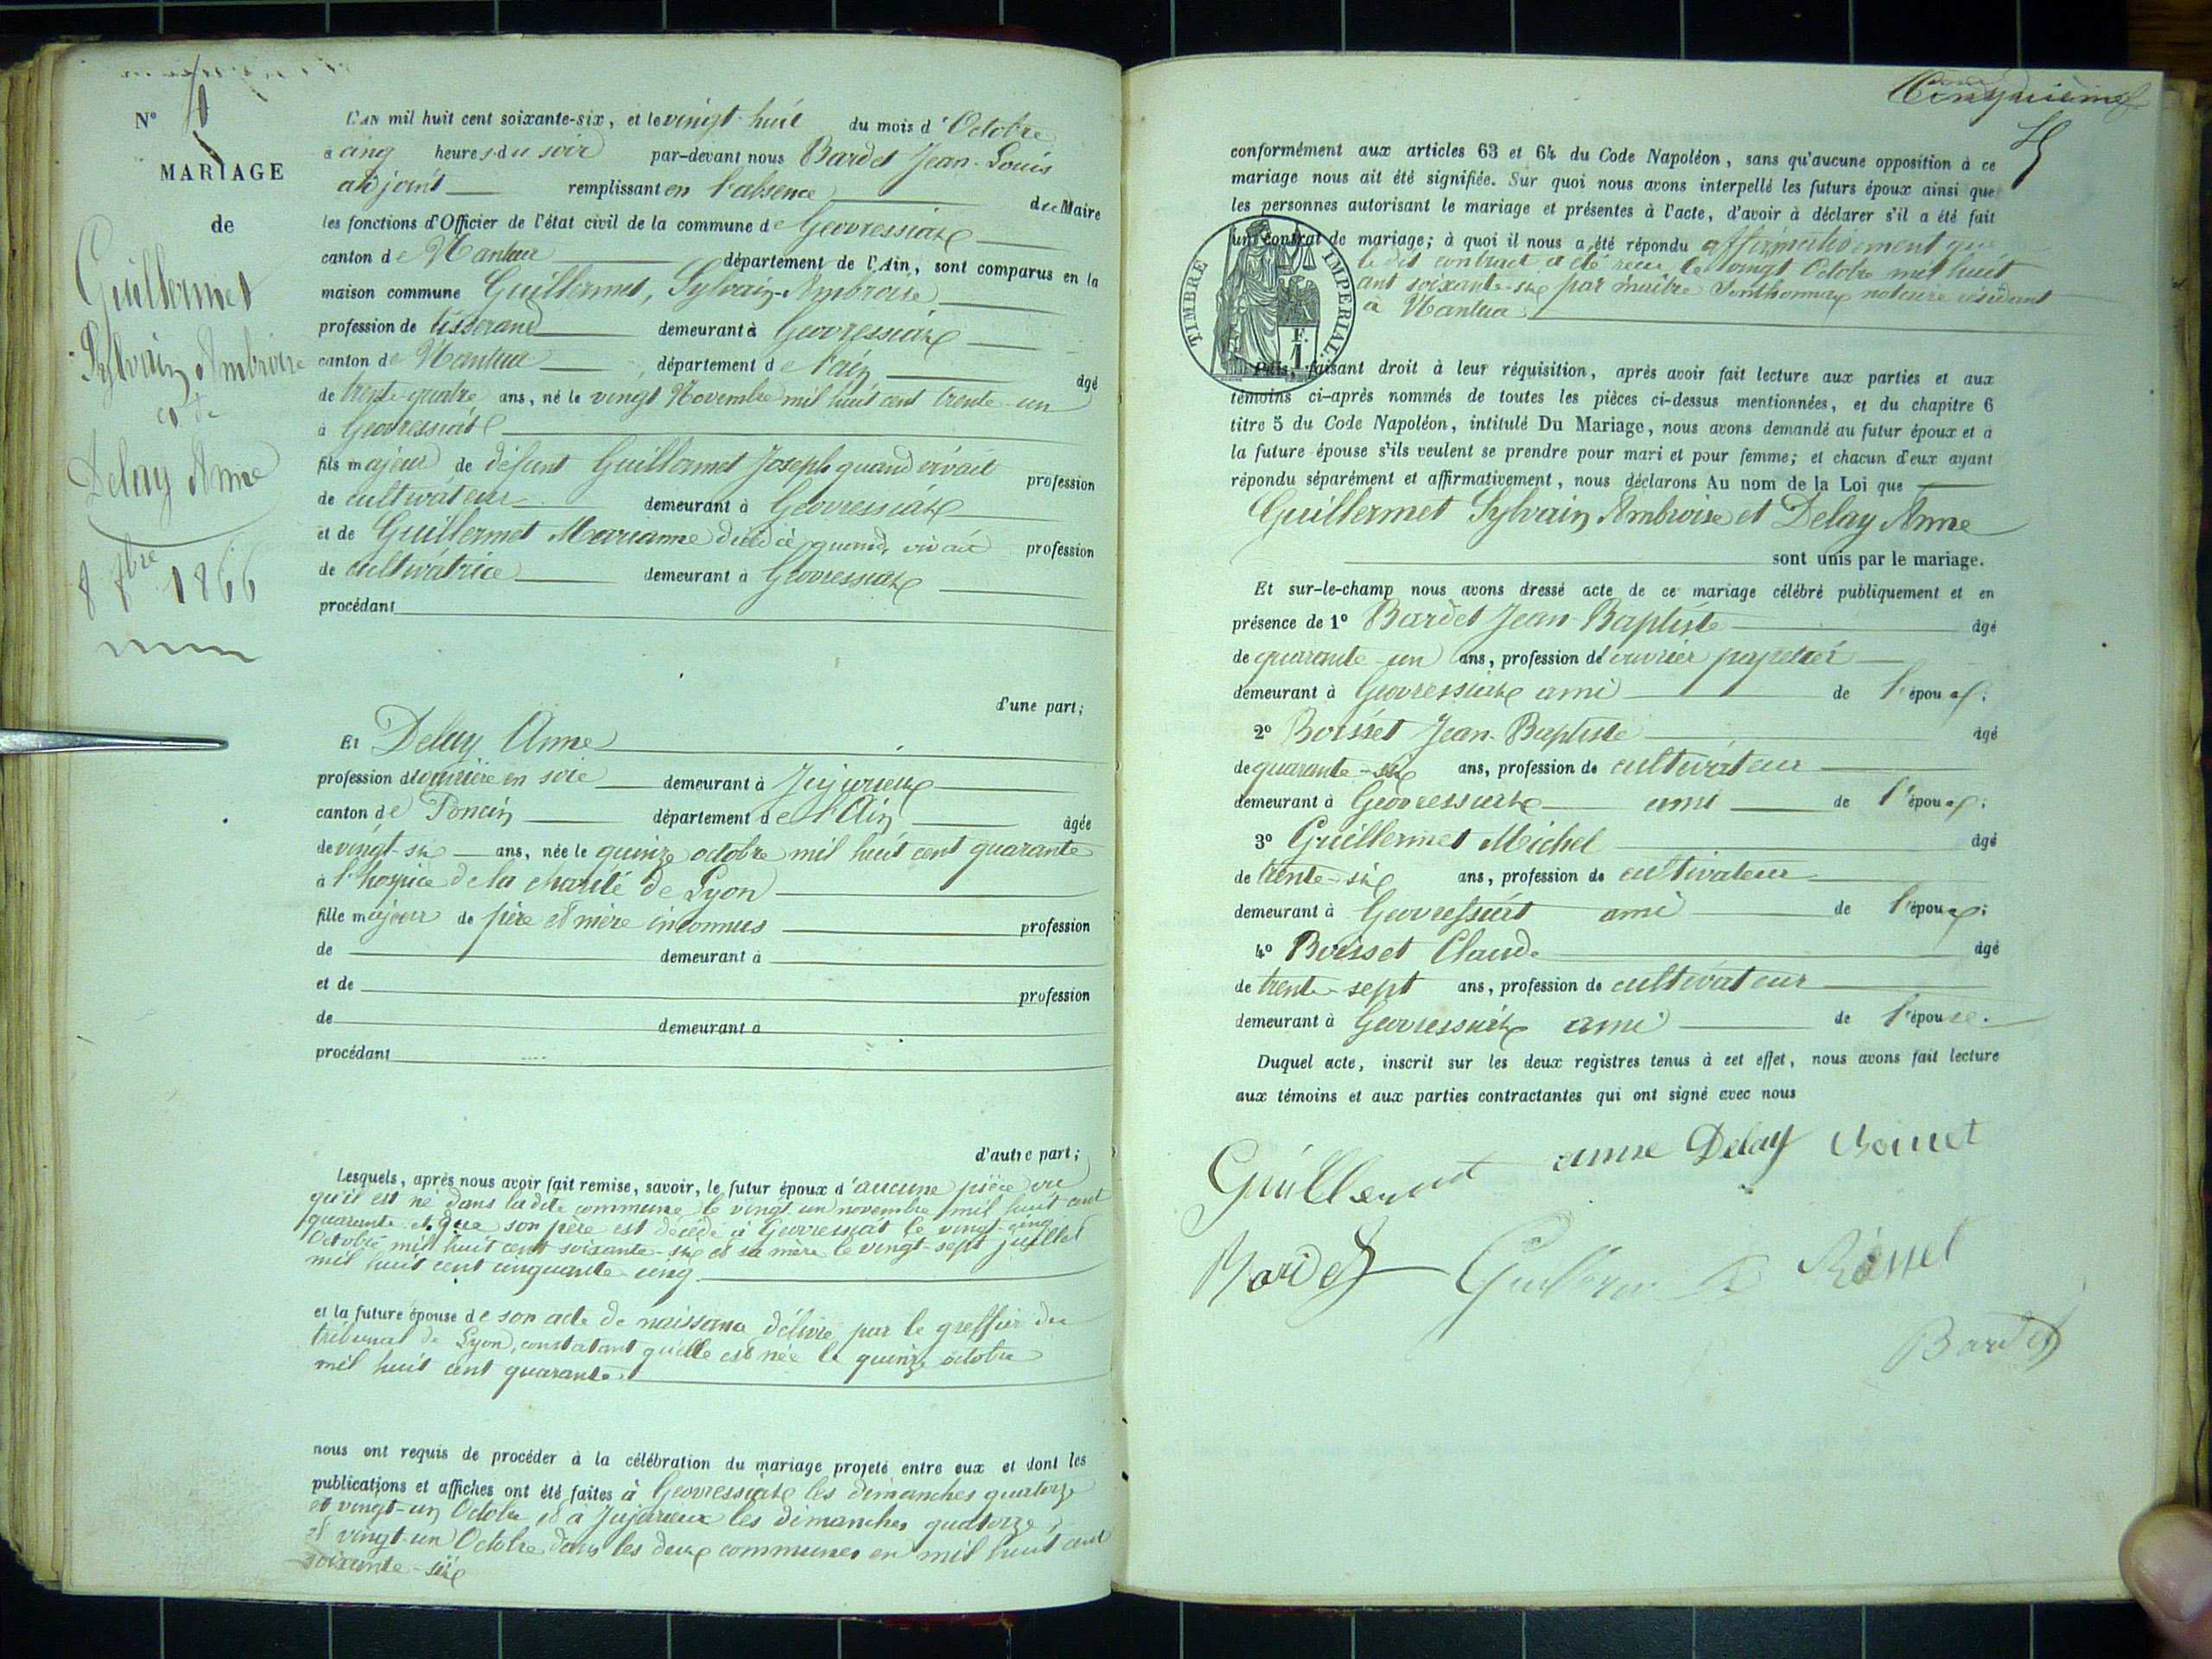 Nº 4
MARIAGE
de
Guillermet
Sylvain Ambroise
et de
Delay Anne
8 8bre 1866
L'AN mil huit cent soixante-six, et le vingt-huit du mois d'Octobre
à cinq heures du soir par-devant nous Bardet Jean-Louis
adjoint remplissant en l'absence du Maire
les fonctions d'Officier de l'état civil de la commune de Geovressiat
canton de Nantua département de l'Ain, sont comparus en la
maison commune Guillermet, Sylvain-Ambroise
profession de tisserand demeurant à Geovressiat
canton de Nantua département de l'ain âgé
de trente-quatre ans, né le vingt Novembre mil huit cent trente-un
à Geovressiat
fils majeur de défunt Guillermet Joseph quand vivait profession
de cultivateur demeurant à Geovressiat
et de Guillermet Marianne quand vivait profession
de cultivatrice demeurant à Geovressiat
procédant
d'une part;
Et Delay Anne
profession d'ouvrière en soie demeurant à Jujurieux
canton de Poncin département de l'Ain âgée
de vingt-six ans, née le quinze octobre mil huit cent quarante
à l'hospice de la charité de Lyon
fille majeur de père et mère inconnus profession
de demeurant à
et de profession
de demeurant à
procédant
d'autre part;
Lesquels, après nous avoir fait remise, savoir, le futur époux d'aucune pièce vu
qu'il est né dans la dite commune le vingt un novembre mil huit cent
quarante et que son père est décédé à Geovressiat le vingt-cinq
Octobre mil huit cent soixante-six et sa mère le vingt-sept juillet
mil huit cent cinquante cinq
et la future épouse de son acte de naissance délivré par le greffier du
tribunal de Lyon, constatant qu'elle est née le quinze octobre
mil huit cent quarante
nous ont requis de procéder à la célébration du mariage projeté entre eux et dont les
publications et affiches ont été faites à Geovressiat les dimanches quatorze
et vingt-un Octobre et à Jujurieux les dimanches quatorze
et vingt-un Octobre dans les deux communes en mil huit cent
soixante-six
Cinquième
5
conformément aux articles 63 et 64 du Code Napoléon, sans qu'aucune opposition à ce
mariage nous ait été signifiée. Sur quoi nous avons interpellé les futurs époux ainsi que
les personnes autorisant le mariage et présentes à l'acte, d'avoir à déclarer s'il a été fait
un contrat de mariage; à quoi il nous a été répondu affirmativement que
le dit contract a été reçu le vingt Octobre mil huit
cent soixante-six par maître notaire résidant
à Nantua
TIMBRE IMPERIAL
Puis, faisant droit à leur réquisition, après avoir fait lecture aux parties et aux
témoins ci-après nommés de toutes les pièces ci-dessus mentionnées, et du chapitre 6
titre 5 du Code Napoléon, intitulé Du Mariage, nous avons demandé au futur époux et à
la future épouse s'ils veulent se prendre pour mari et pour femme; et chacun d'eux ayant
répondu séparément et affirmativement, nous déclarons Au nom de la Loi que
Guillermet Sylvain Ambroise et Delay Anne
sont unis par le mariage.
Et sur-le-champ nous avons dressé acte de ce mariage célébré publiquement et en
présence de 1º Bardet Jean-Baptiste âgé
de quarante-un ans, profession d'ouvrier papetier
demeurant à Geovressiat ami de l'époux;
2º Boisset Jean-Baptiste âgé
de quarante-six ans, profession de cultivateur
demeurant à Geovressiat ami de l'époux;
3º Guillermet Michel âgé
de trente-six ans, profession de cultivateur
demeurant à Geovressiat ami de l'époux;
4º Boisset Claude âgé
de trente-sept ans, profession de cultivateur
demeurant à Geovressiat ami de l'épouse.
Duquel acte, inscrit sur les deux registres tenus à cet effet, nous avons fait lecture
aux témoins et aux parties contractantes qui ont signé avec nous
Guillermet anne Delay Boisset
Bardet Boisset
Bardet